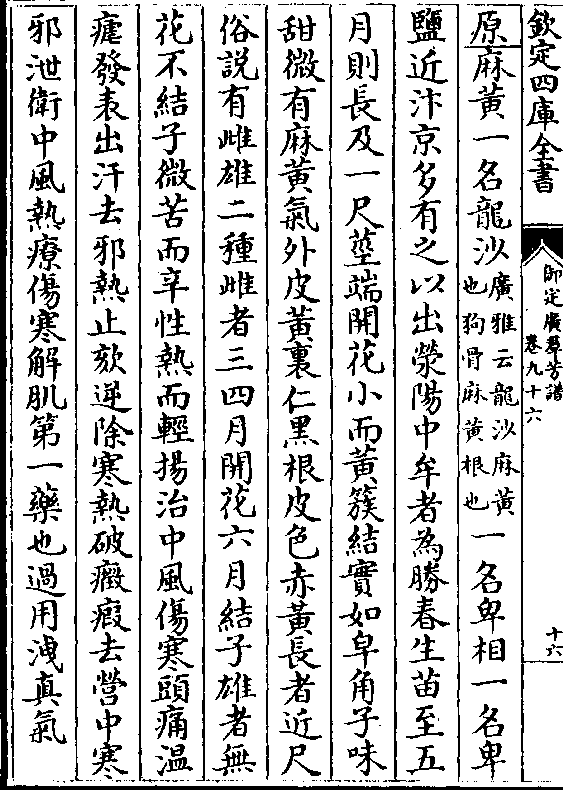 欽定四庫全書
御定廣羣芳譜
卷九十六
十六
原麻黃一名龍沙廣雅云龍沙麻黃也狗骨麻黃根也一名卑相一名卑
鹽近汴京多有之以出滎陽中牟者為勝春生苗至五
月則長及一尺莖端開花小而黃簇結實如皁角子味
甜微有麻黃氣外皮黃裏仁黑根皮色赤黃長者近尺
俗說有雌雄二種雌者三四月開花六月結子雄者無
花不結子微苦而辛性熱而輕揚治中風傷寒頭痛温
瘧發表出汗去邪熱止欬逆除寒熱破癥瘕去營中寒
邪泄衛中風熱療傷寒解肌第一藥也過用洩真氣